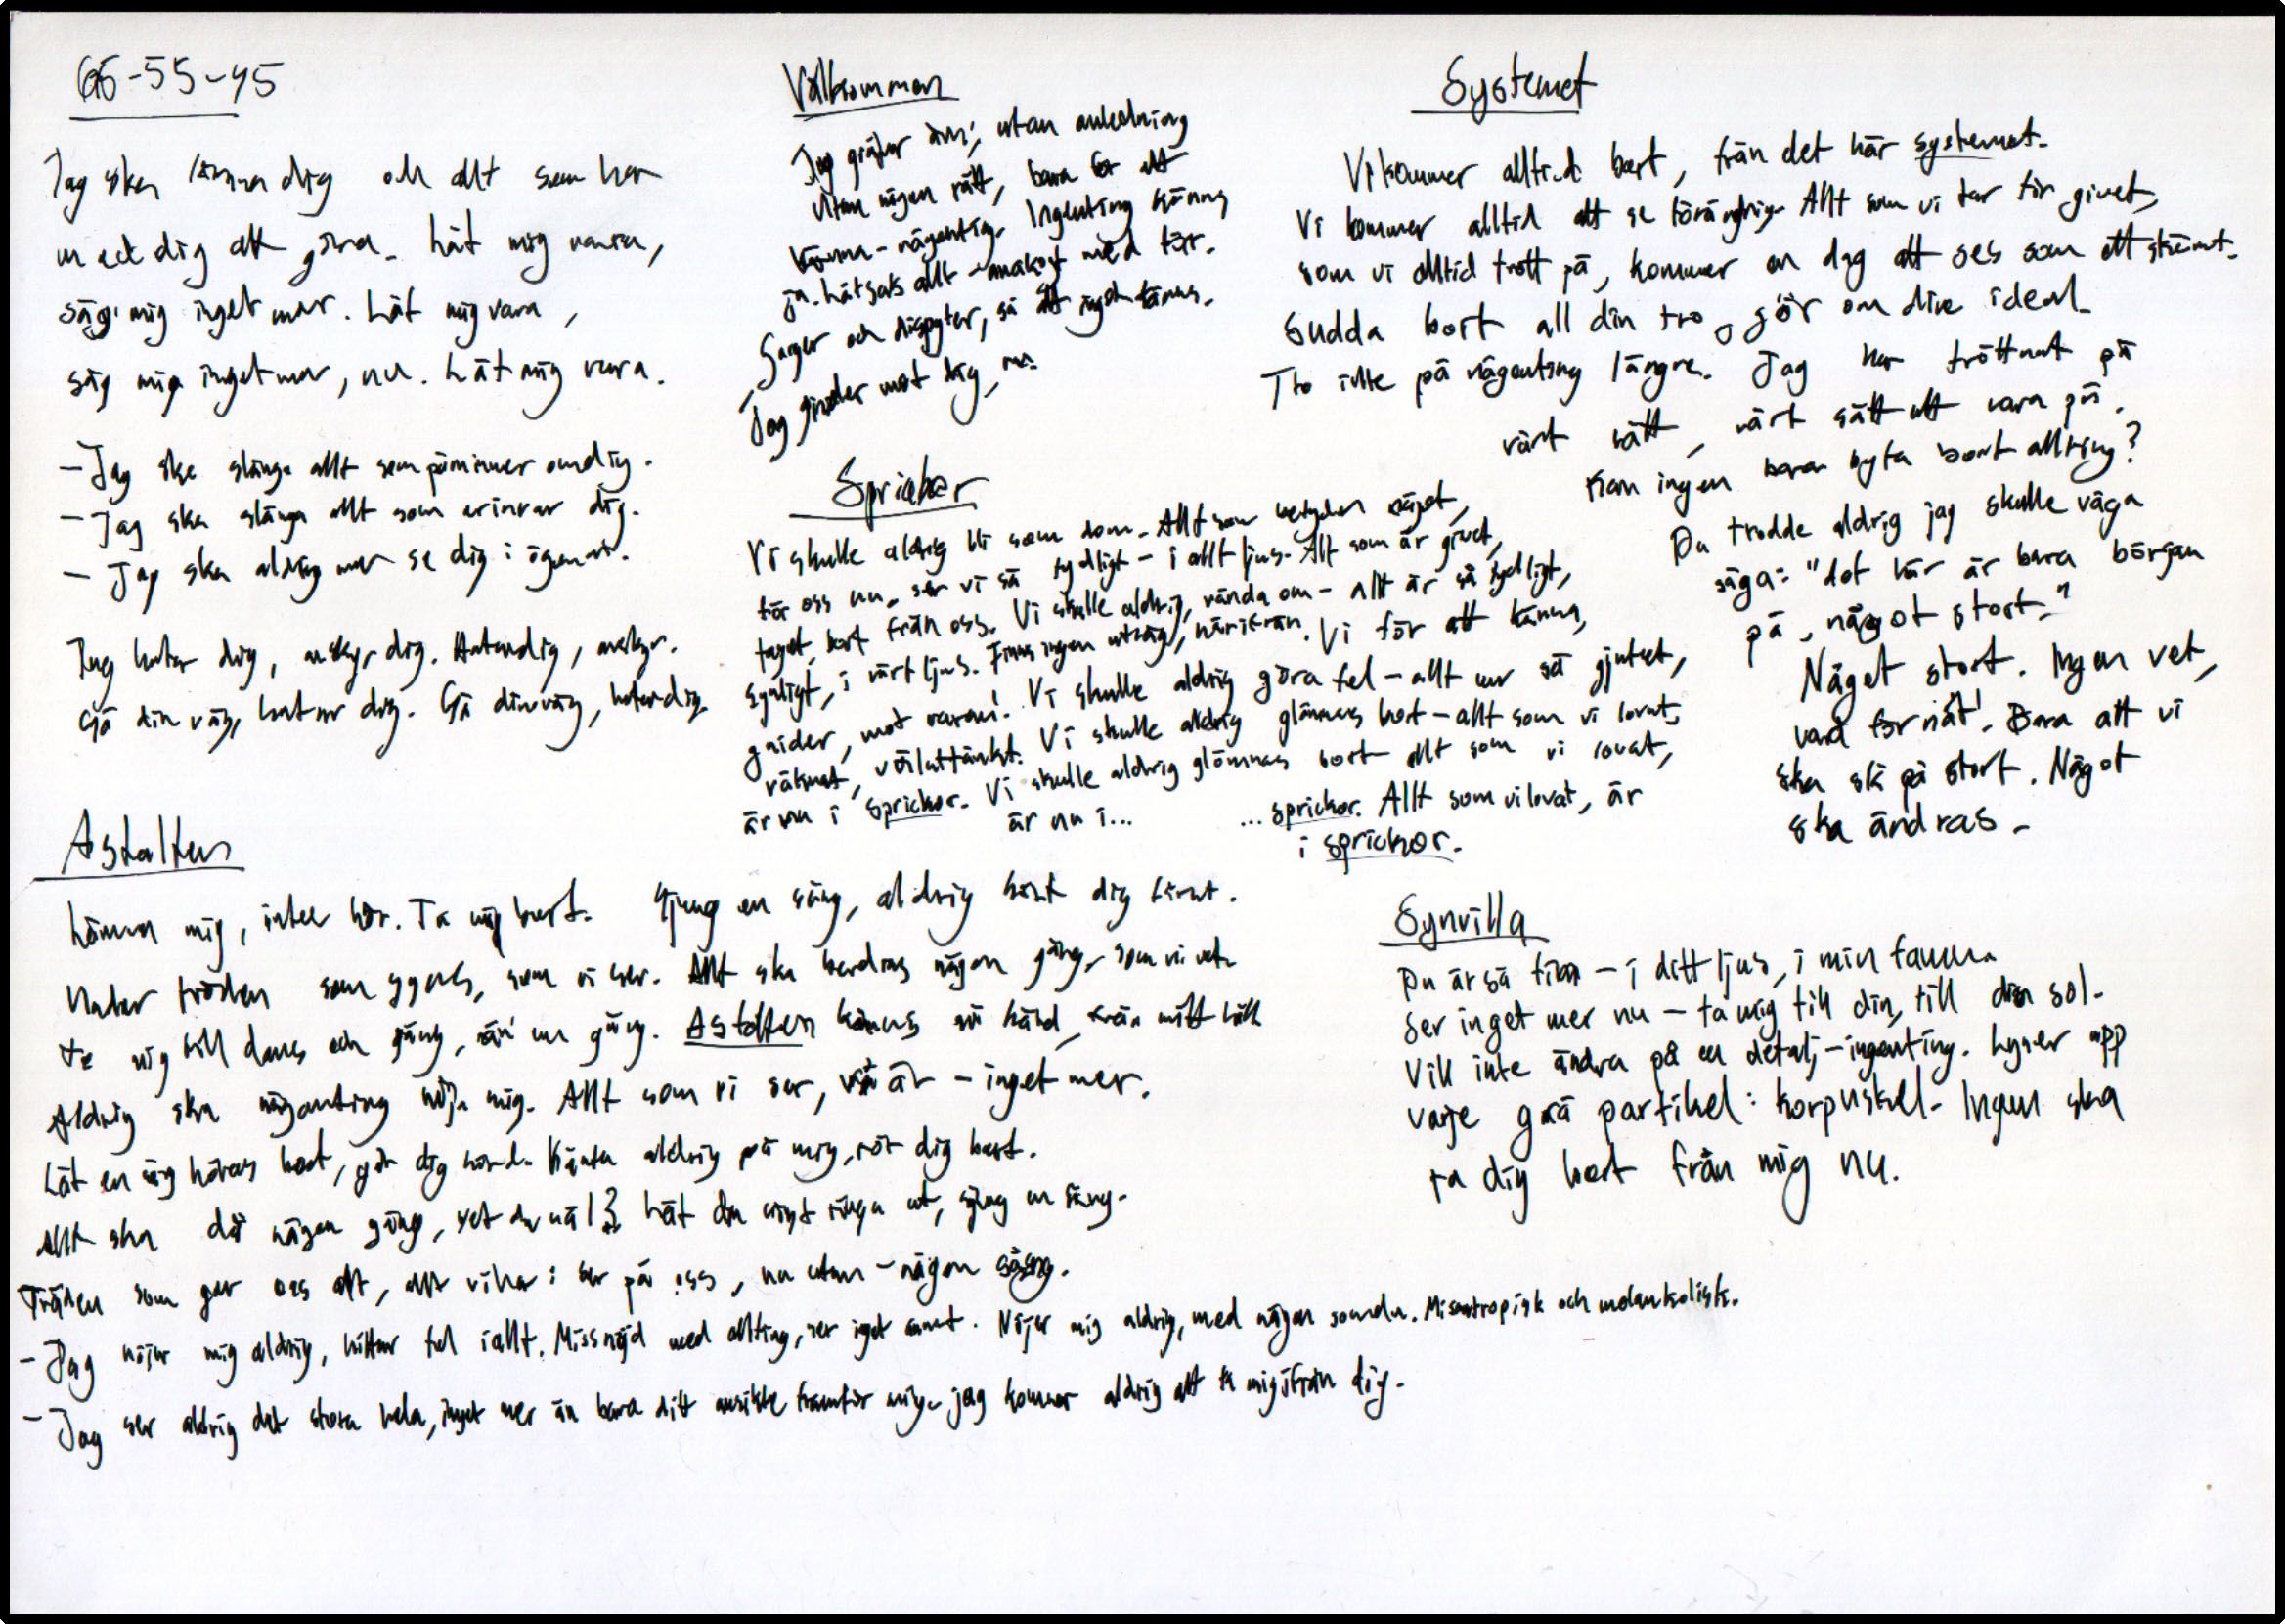 66-55-45
Jag ska lämna dig och allt som har
med dig att göra. Låt mig vara,
säg mig inget mer. Låt mig vara,
säg mig inget mer, nu. Låt mig vara.
- Jag ska slänga allt som påminner om dig.
- Jag ska slänga allt som erinrar dig.
- Jag ska aldrig mer se dig i ögonen.
Jag hatar dig, avskyr dig. Hatar dig, avskyr.
Gå din väg, hatar dig. Gå din väg, hatar dig.
Välkommen
Jag gråter utan anledning
utan någon rätt, bara för att
känna - någonting. Ingenting känns
ja. Låtsas allt med tår.
Sagor och dispyter, så att inget känns.
Jag mot dig, nu.
Sprickor
Vi skulle aldrig bli som dom. Allt som betyder något,
för oss nu, ser vi så tydligt - i allt ljus. Allt som är givet,
taget bort från oss. Vi skulle aldrig, vända om - allt är så tydligt,
synligt, i vårt ljus. Finns ingen utväg, härifrån. Vi får att känna,
guider, mot varann! Vi skulle aldrig göra fel - allt var så gjutet,
räknat, vältänkt. Vi skulle aldrig glömmas bort - allt som vi lovat,
är nu i sprickor. Vi skulle aldrig glömmas bort allt som vi lovat,
är nu i... ...sprickor. Allt som vi lovat, är
i sprickor.
Systemet
Vi kommer alltid bort, från det här systemet.
Vi kommer alltid att se förändring. Allt som vi tar för givet,
som vi alltid trott på, kommer en dag att ses som ett skämt.
Sudda bort all din tro, gör om dina ideal.
Tro inte på någonting längre. Jag har tröttnat på
vårt sätt, vårt sätt att vara på.
Kan ingen bara byta bort allting?
Du trodde aldrig jag skulle våga
säga: "det här är bara början
på, något stort."
Något stort. Ingen vet,
vad för nåt! Bara att vi
ska slå på stort. Något
ska ändras.
Astalten
Lämna mig, inte här. Ta mig bort. Sjung en sång, aldrig hört dig förut.
Under träden som gynnas, som vi ser. Allt ska hända någon gång, som vi vet.
Ta mig till dans och sång, än en gång. Astalten känns så hård, från mitt håll
Aldrig ska någonting nöja mig. Allt som vi ser, vi är - inget mer.
Låt en sång höras bort, gör dig hörd. Vänta aldrig på mig, rör dig bort.
Allt ska dö någon gång, vet du väl? Låt din röst ringa ut, sjung en sång.
Träden som ger oss allt, allt vi har: ser på oss, nu utan - någon sång.
- Jag nöjer mig aldrig, hittar fel i allt. Missnöjd med allting, ser inget annat. Nöjer mig aldrig, med någon sonda. Misantropisk och melankolisk.
- Jag ser aldrig det stora hela, inget mer än bara ditt ansikte framför mig. jag kommer aldrig att ta mig ifrån dig.
Synvilla
Du är så fin - i ditt ljus, i min famn.
Ser inget mer nu - ta mig till din, till din sol.
Vill inte ändra på en detalj - ingenting. Lyser upp
varje grå partikel: korpuskel. Ingen ska
ta dig bort från mig nu.